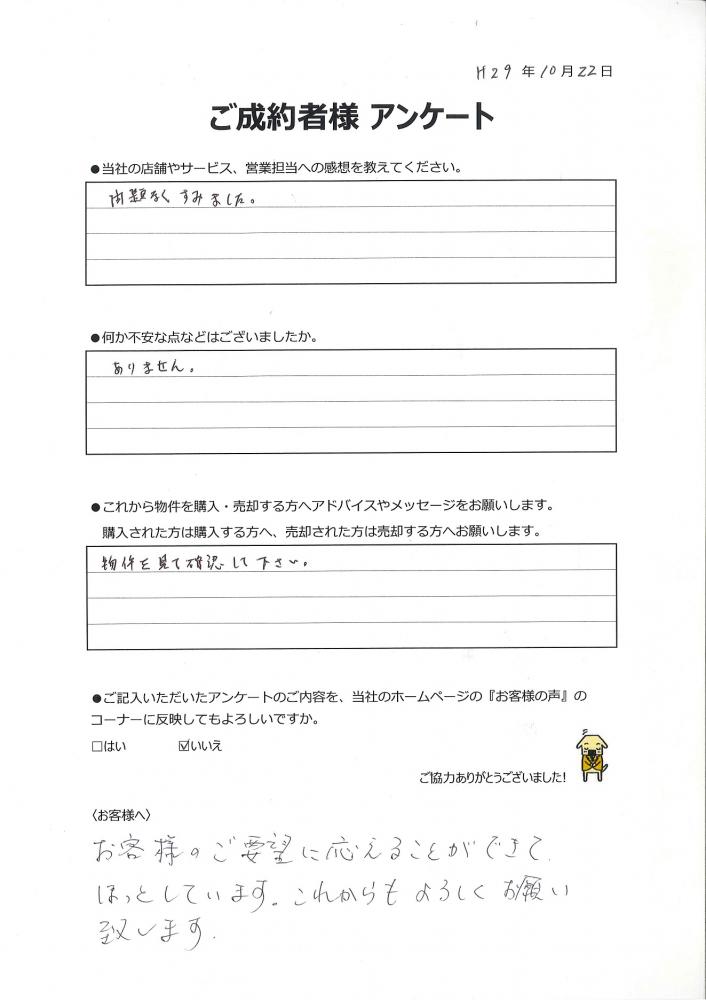 H29年10月22日
ご成約者様 アンケート
●当社の店舗やサービス、営業担当への感想を教えてください。
問題なくすみました。
●何か不安な点などはございましたか。
ありません。
●これから物件を購入・売却する方へアドバイスやメッセージをお願いします。
購入された方は購入する方へ、売却された方は売却する方へお願いします。
物件を見て確認して下さい。
●ご記入いただいたアンケートのご内容を、当社のホームページの『お客様の声』の
コーナーに反映してもよろしいですか。
□はい ☑いいえ
ご協力ありがとうございました!
〈お客様へ〉
お客様のご要望に応えることができて、
ほっとしています。これからもよろしくお願い
致します。